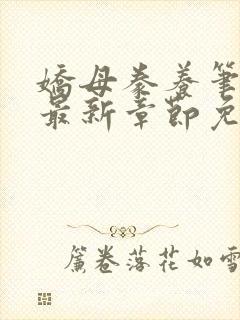 嬌母豢養筆
最新章節免
簾卷落花如雪